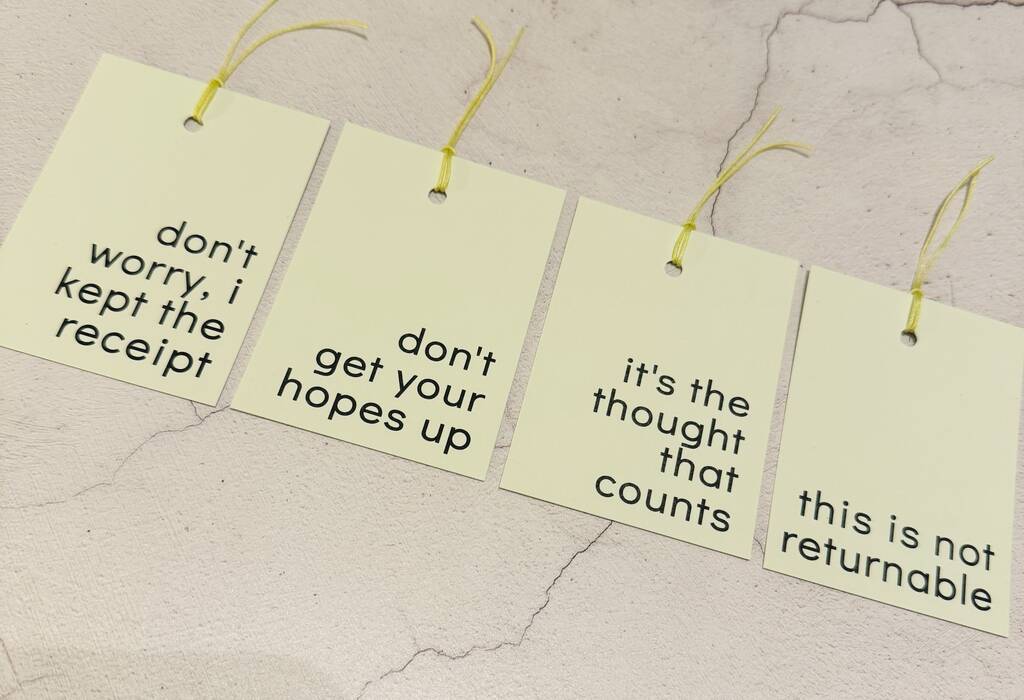 don't
worry, i
kept the
receipt
don't
get your
hopes up
it's the
thought
that
counts
this is not
returnable